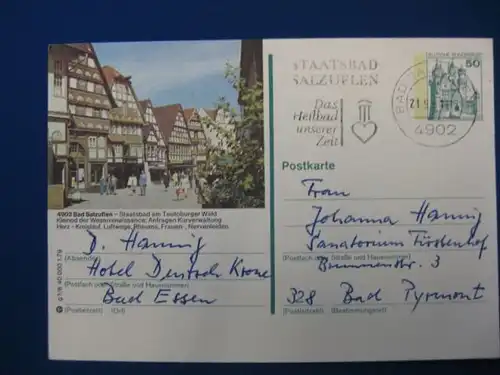 STAATSBAD
SALZUFLEN
Das
Heilbad
unserer
Zeit
BAD
21.
4902
DEUTSCHE BUNDESPOST
50
4902 Bad Salzuflen – Staatsbad am Teutoburger Wald
Kleinod der Weserrenaissance; Anfragen Kurverwaltung
Herz - Kreislauf, Luftwege, Rheuma, Frauen-, Nervenleiden
Postkarte
Frau
Johanna Hannig
Sanatorium Fürstenhof
Brunnenstr. 3
(Postfach oder Straße und Hausnummer)
328 Bad Pyrmont
(Postleitzahl) (Bestimmungsort)
D. Hannig
(Absender)
Hotel Deutsche Krone
(Postfach oder Straße und Hausnummer)
Bad Essen
(Postleitzahl) (Ort)